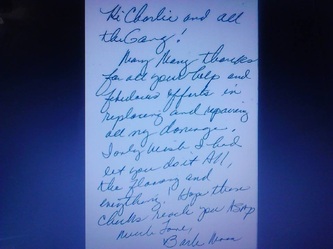 Hi Charlie and all
the Gang!
Many Many thanks
for all your help and
fabulous efforts in
replacing and repairing
all my damage.
I only wish I had
let you do it All,
the flooring and
everything! Hope these
checks reach you ASAP
Much Love,